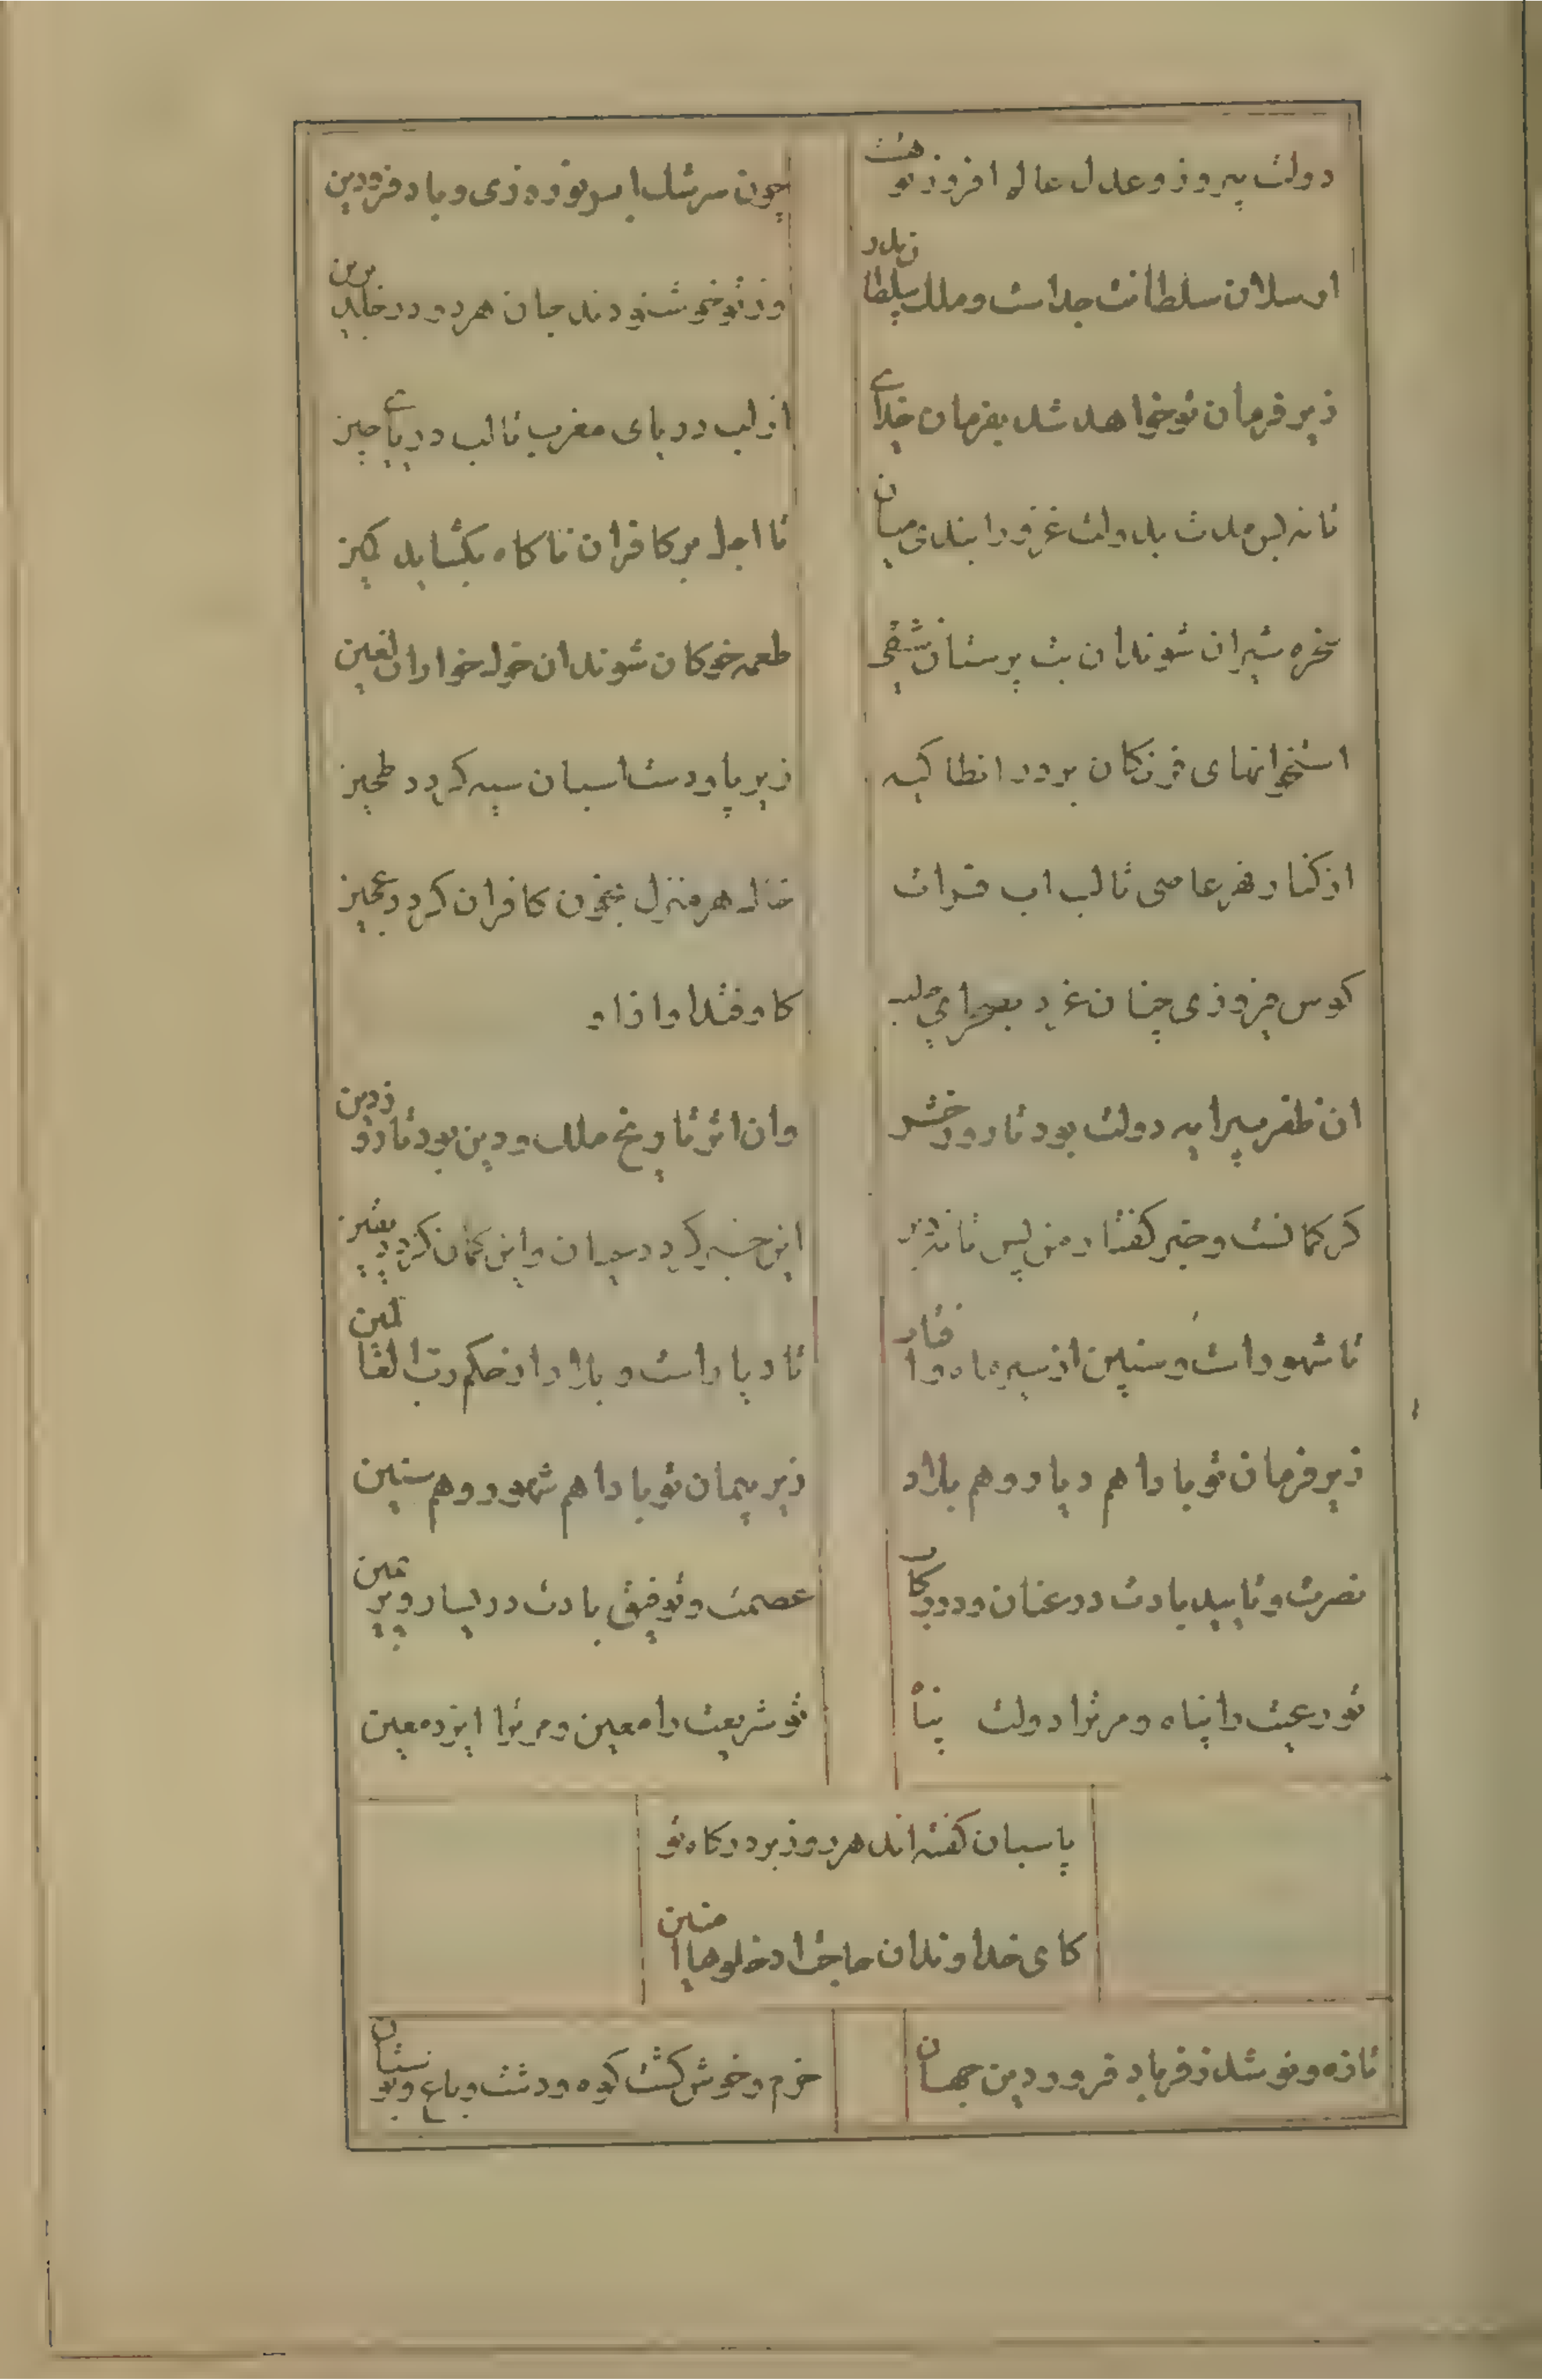 دولت پیروز و عدل عالم افروز تو هست
چون سرشک ابر نوروزی و باد فرودین
ارسلان سلطانت جداست و ملک سلطان پدر
وز تو خوشنودند جان هر دو در خلد برین
زیر فرمان تو خواهد شد بفرمان خدای
از لب دریای مغرب تا لب دریای چین
تا نه بس مدت بدولت غزو را بندی میان
تا اجل بر کافران ناکاه بکشاید کمین
سخره شیران شوند ان بت پرستان شقی
طعمه خوکان شوند ان خوک خواران لعین
استخوانهای فرنکان بر در انطاکیه
زیر پا و دست اسبان سپه کردد طحین
از کنار نهر عاصی تا لب اب فرات
خاک هر منزل بخون کافران کردد عجین
کوس فیروزی چنان غرد بصحرای حلب
کاوفتد اواز او
ان ظفر پیرایه دولت بود تا روز حشر
وان اثر تاریخ ملک و دین بود تا روز دین
کر کمانست و خبر کفتار من پس تا نه دیر
این خبر کردد عیان و این کمان کردد یقین
تا شهور است و سنین از سیر ماه و افتاب
تا دیار است و بلاد از حکم رب العالمین
زیر فرمان تو بادا هم دیار و هم بلاد
زیر پیمان تو بادا هم شهور و هم سنین
نصرت و تایید بادت در عنان و در رکاب
عصمت و توفیق بادت در یسار و در یمین
تو رعیت را پناه و مر ترا دولت پناه
تو شریعت را معین و مر ترا ایزد معین
پاسبان کفته اند هر روز بر درکاه تو
کای خداوندان حاجت ادخلوها امنین
تازه و نو شد ز فر باد فروردین جهان
خرم و خوش کشت کوه و دشت و باغ و بوستان